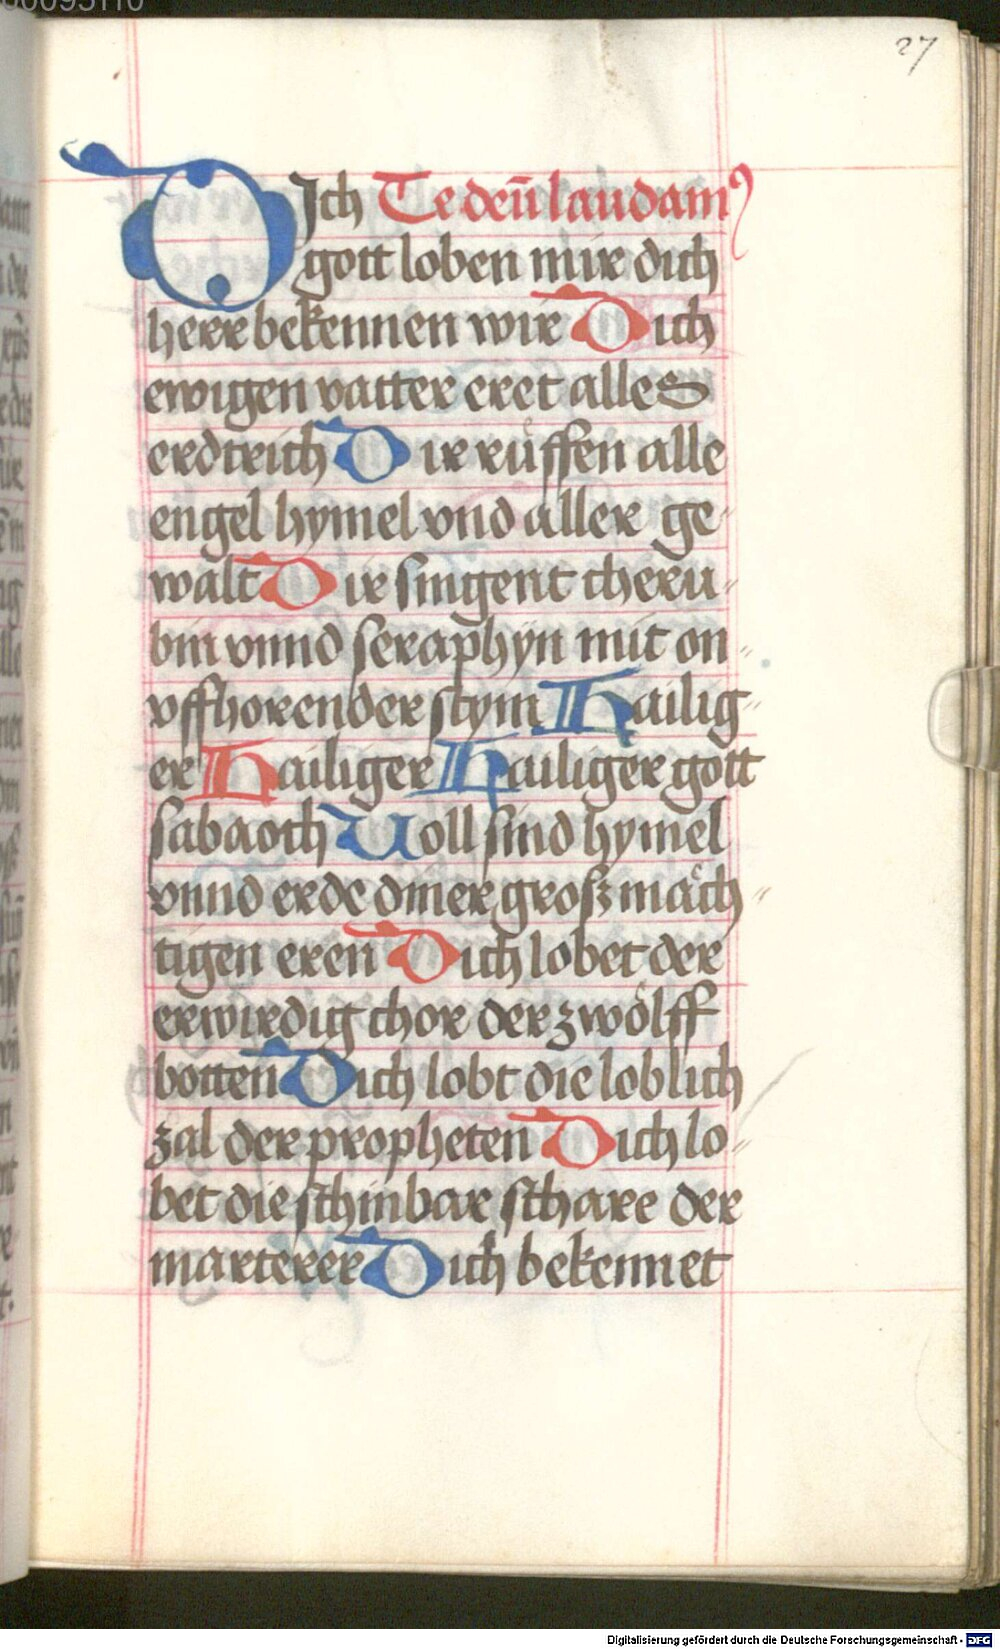 27
DIch Te deū laudamꝰ
gott loben mir dich
herr bekennen wir Dich
ewigen vatter eret alles
erdtrich Dir ruͦffen alle
engel hymel vnd aller ge⸗
walt Dir singent cheru⸗
bin vnnd seraphyn mit on⸗
vffhorender stym Hailig⸗
er Hailiger Hailiger gott
sabaoth Voll sind hymel
vnnd erde diner grosz maͤch⸗
tigen eren Dich lobet der
erwirdig chor der zwoͤlff
botten Dich lobt die loblich
zal der propheten Dich lo⸗
bet die schinbar schare der
marterer Dich bekennet
Digitalisierung gefördert durch die Deutsche Forschungsgemeinschaft - DFG